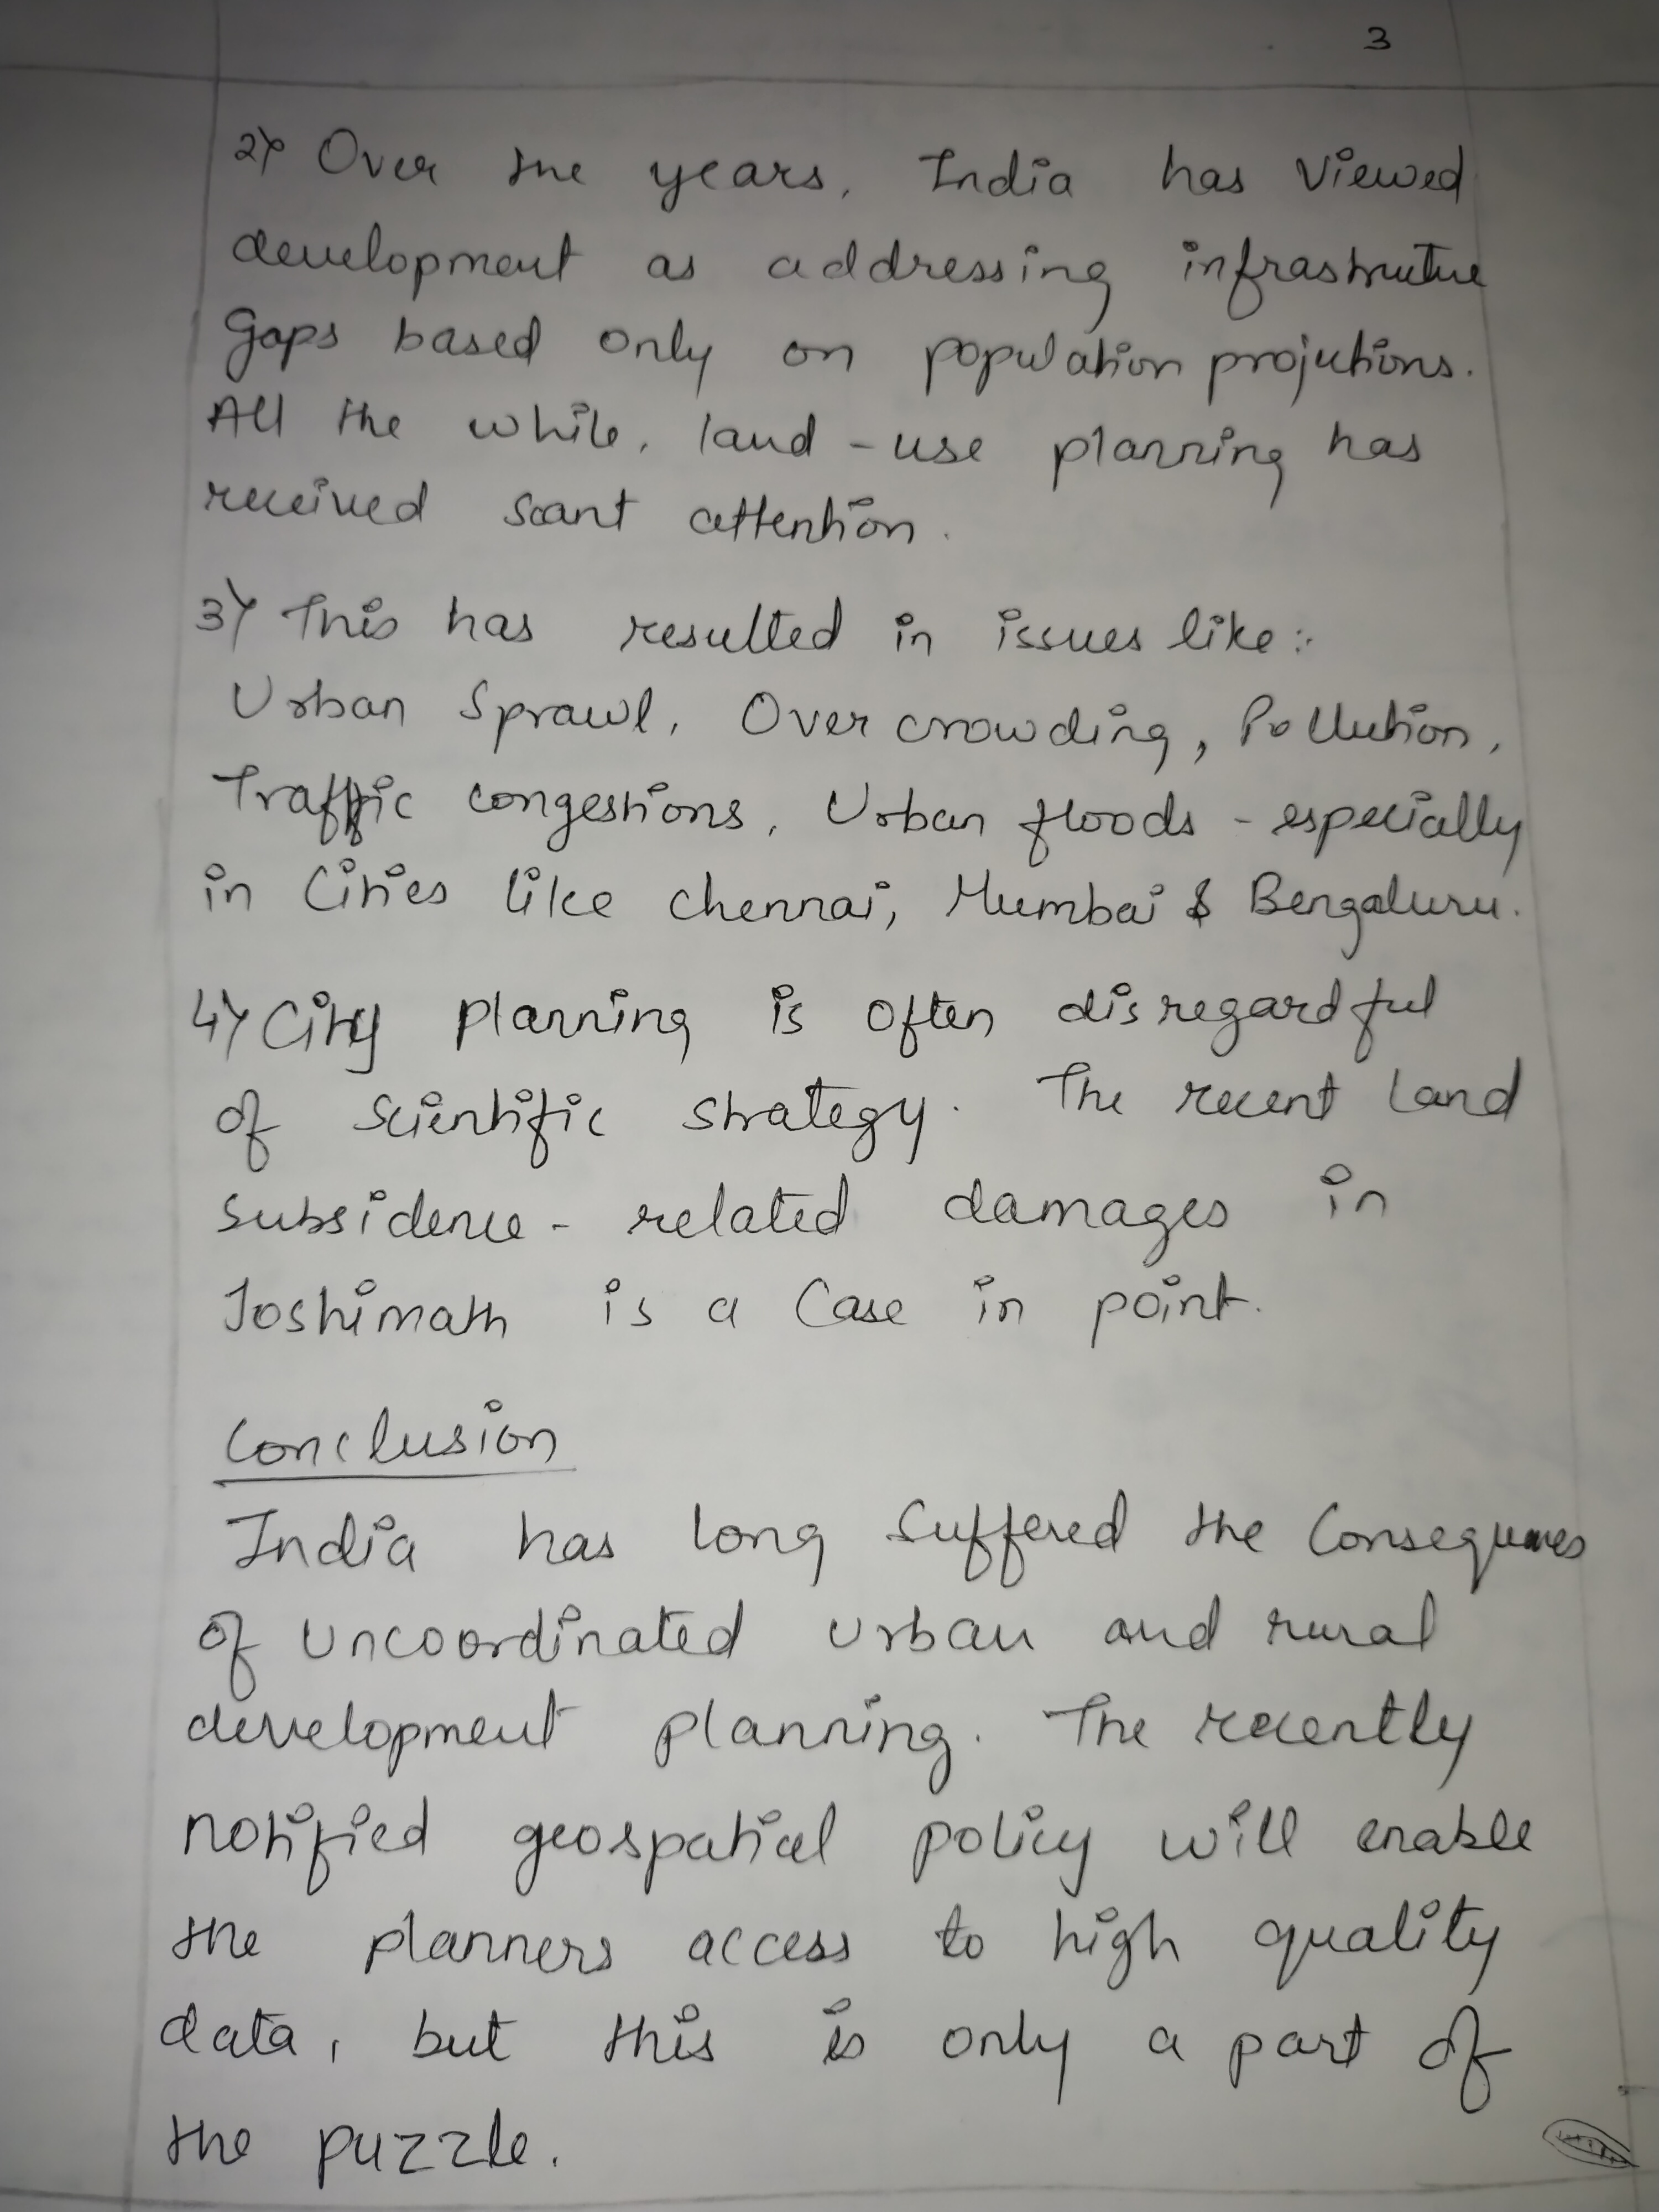 3
2) Over the years, India has viewed
development as addressing infrastructure
Gaps based only on population projections.
All the while, land-use planning has
received scant attention.
3) This has resulted in issues like:
Urban Sprawl, Over crowding, Pollution,
Traffic congestions, Urban floods - especially
in Cities like Chennai, Mumbai & Bengaluru.
4) City planning is often disregardful
of scientific strategy. The recent land
subsidence-related damages in
Joshimath is a Case in point.
Conclusion
India has long suffered the Consequences
of uncoordinated urban and rural
development planning. The recently
notified geospatial policy will enable
the planners access to high quality
data, but this is only a part of
the puzzle.